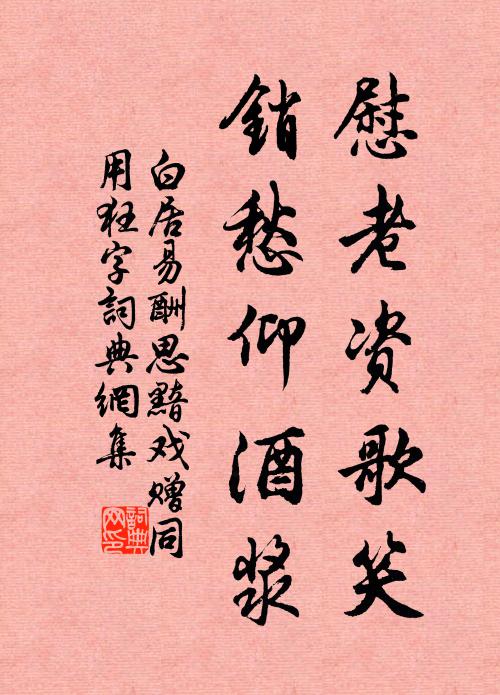 慰老资歌笑
銷愁仰酒漿
白居易酬思黯戏赠同
用狂字詞典網集
詞典
网印